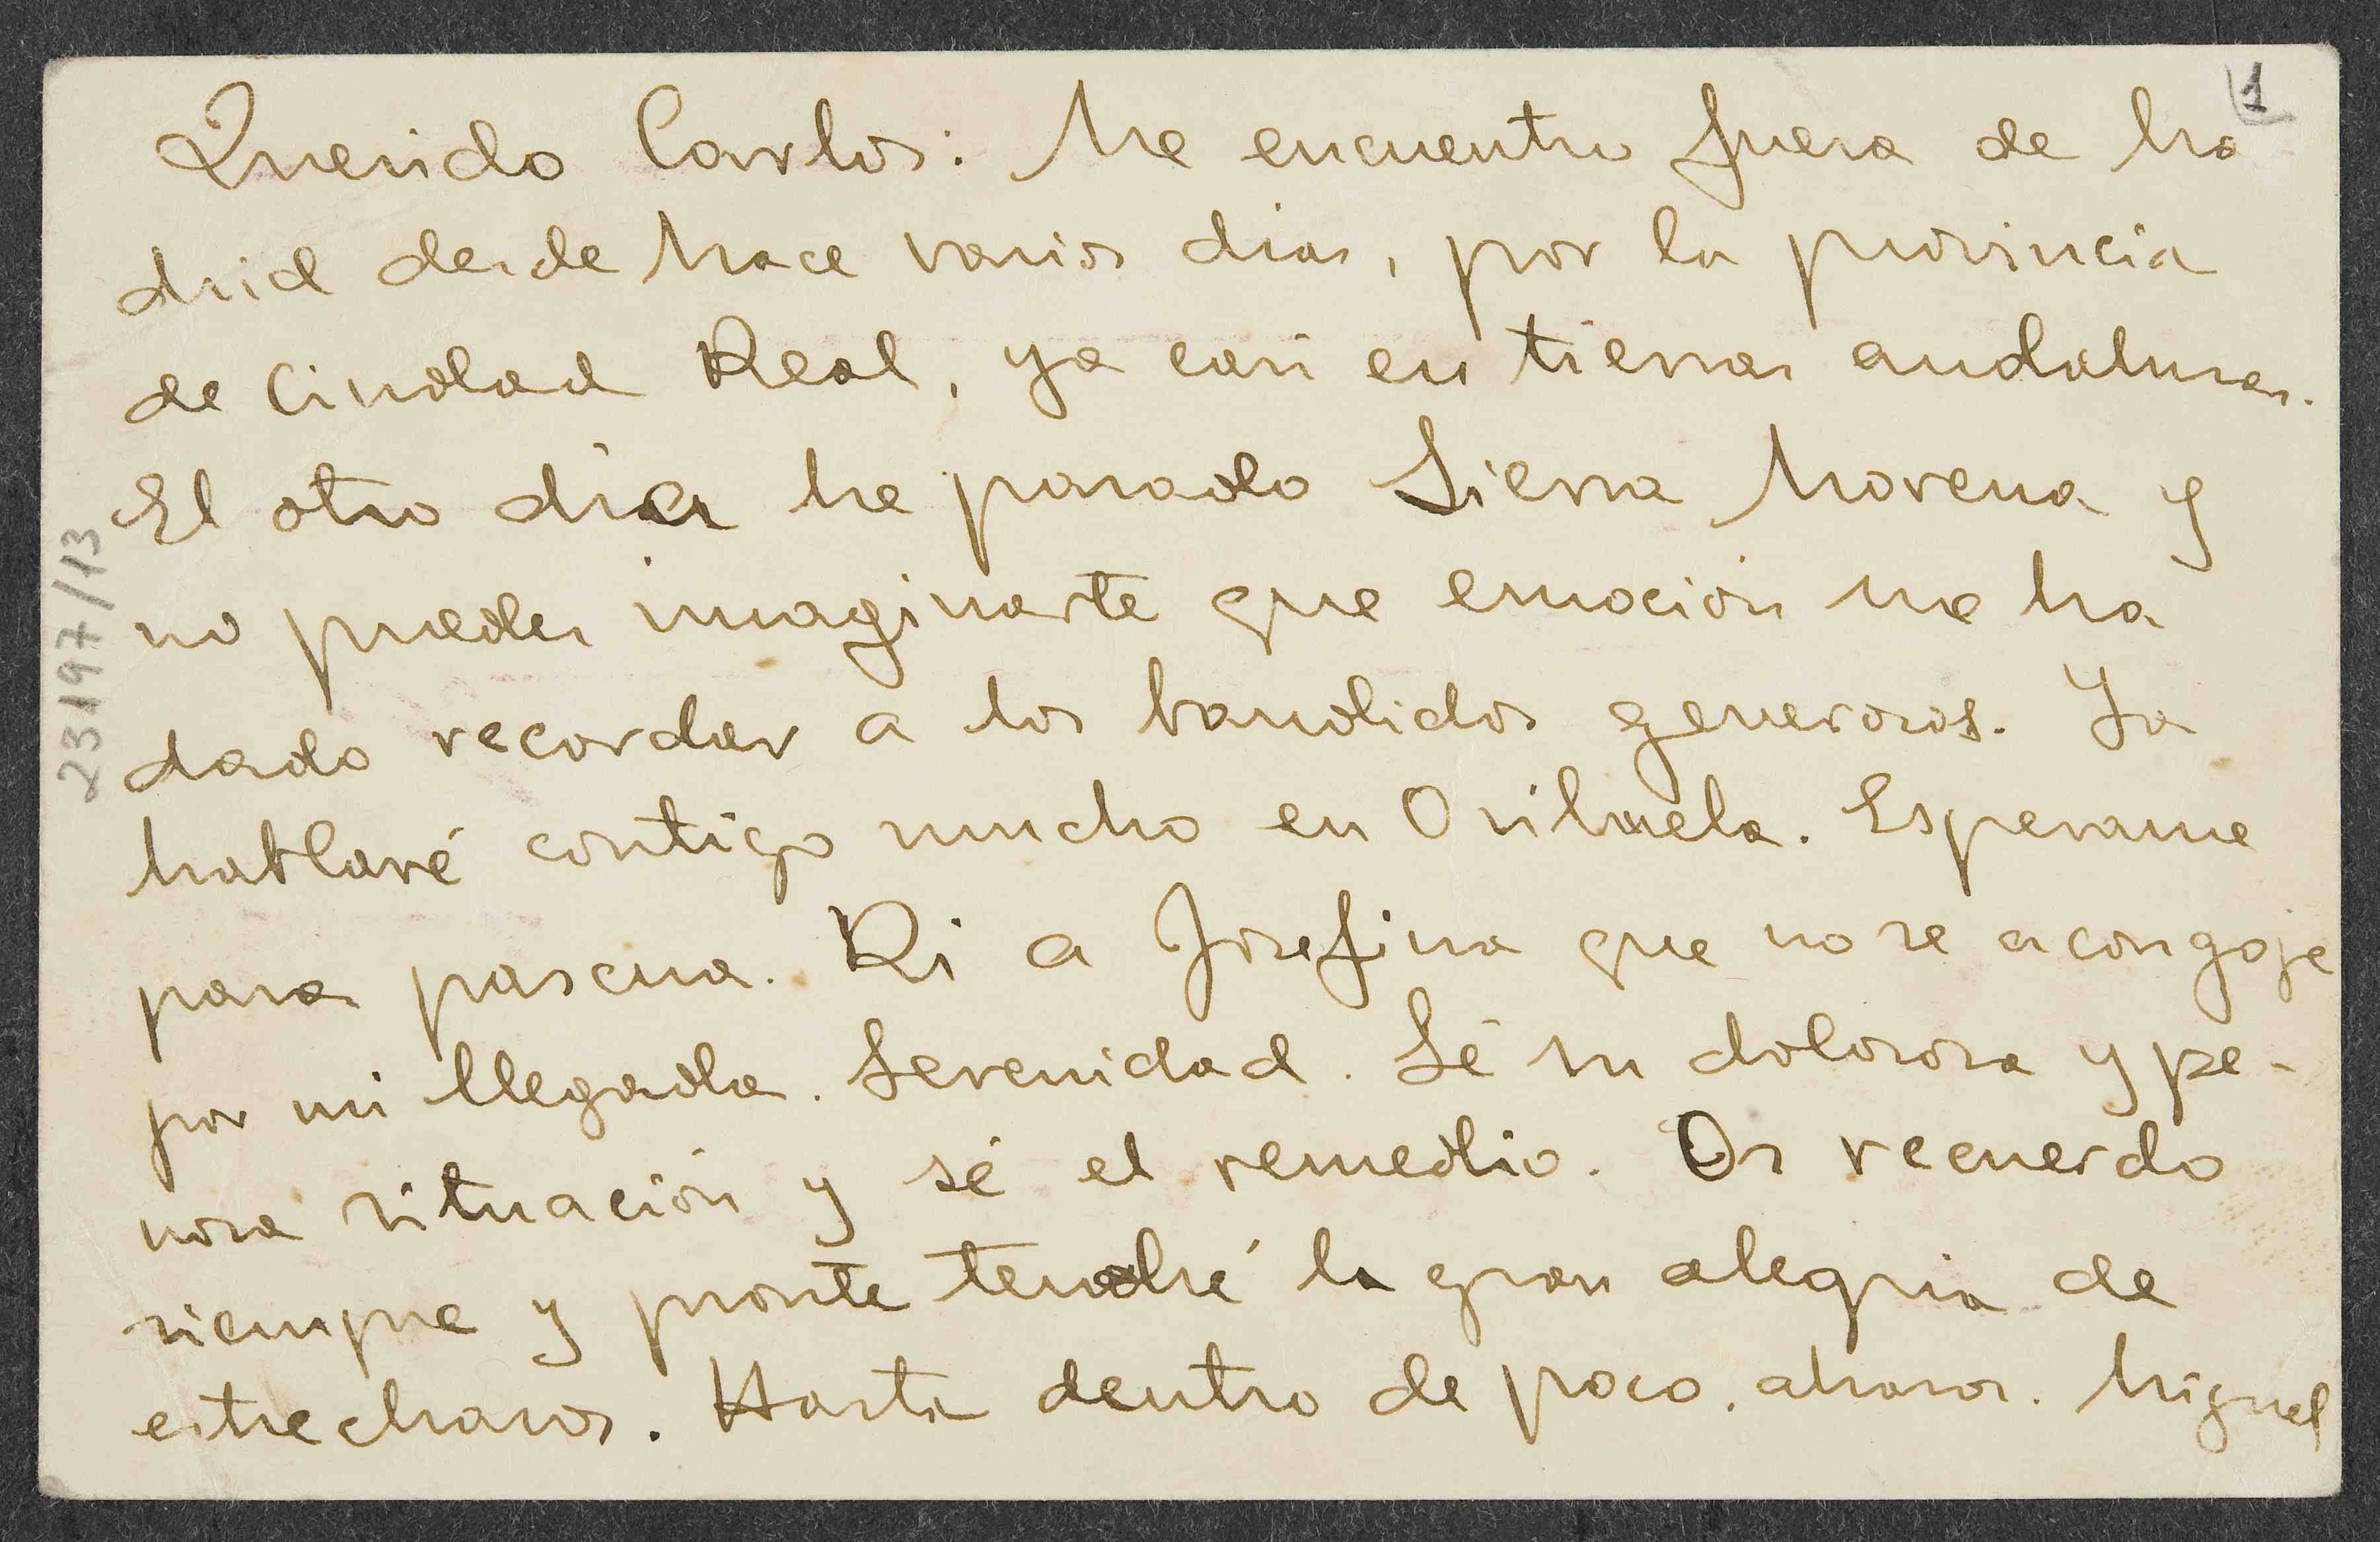 1
Querido Carlos: Me encuentro fuera de Ma
drid desde hace varios dias, por la provincia
de Ciudad Real, ya casi en tierras andaluzas.
El otro día he pasado Sierra Morena y
no puedes imaginarte que emoción me ha
dado recordar a los bandidos generosos. Ya
hablaré contigo mucho en Orihuela. Esperame
para pascua. Di a Josefina que no se acongoje
por mi llegada. Serenidad. Sé su dolorosa y pe-
nosa situación y sé el remedio. Os recuerdo
siempre y pronto tendré la gran alegria de
estrecharos. Hasta dentro de poco. abrazos. Miguel
23197/13